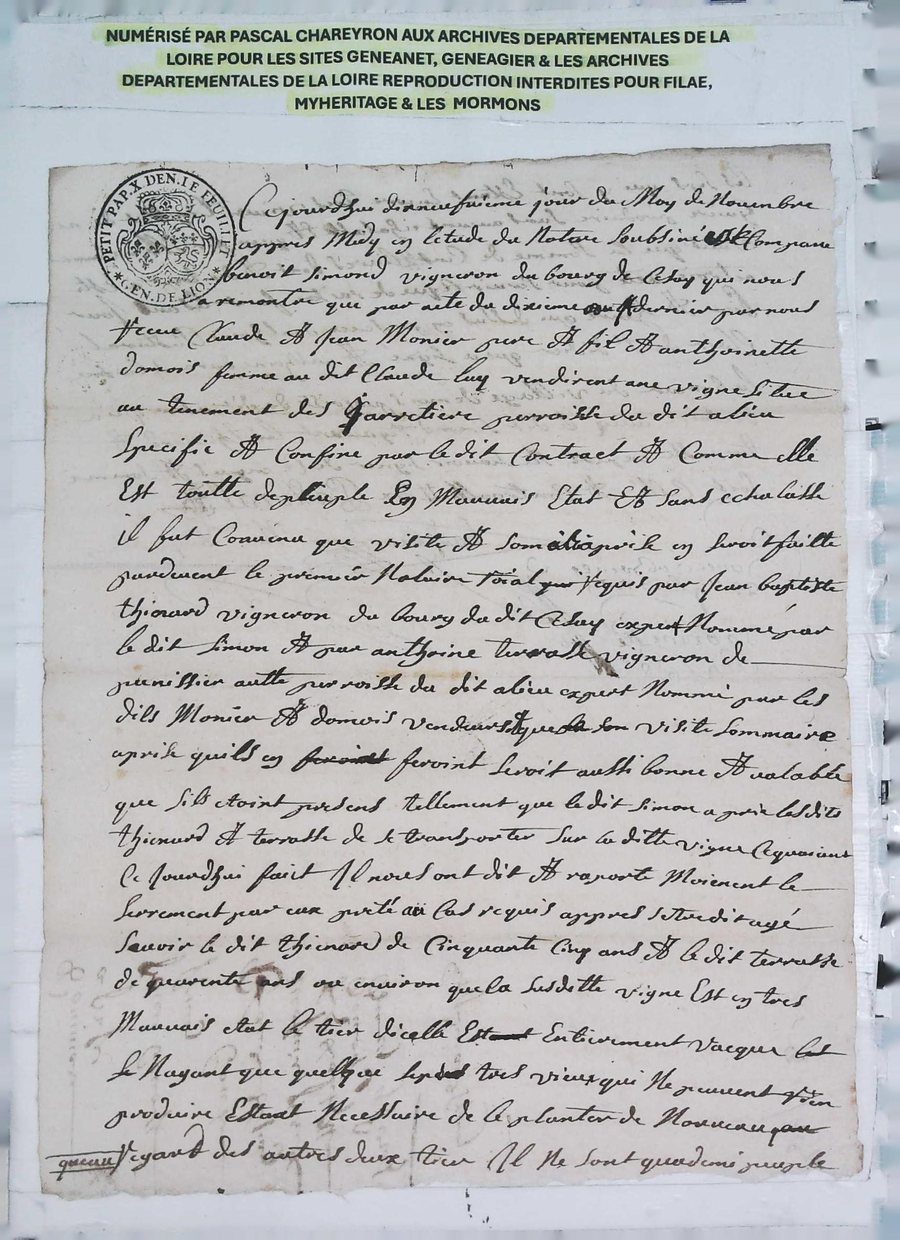 NUMÉRISÉ PAR PASCAL CHAREYRON AUX ARCHIVES DEPARTEMENTALES DE LA
LOIRE POUR LES SITES GENEANET, GENEAGIER & LES ARCHIVES
DEPARTEMENTALES DE LA LOIRE REPRODUCTION INTERDITES POUR FILAE,
MYHERITAGE & LES MORMONS
PETIT PAP. X DEN. LE FEUILLET
GEN. DE LION
Cejourdhui dixneufvieme jour du Moy de Novembre
appres Midy en letude du Notaire Soubsiné Comparu
benoit Simond vigneron du bourg de qui nous
a remontre que par acte du dixieme dernier par nous
receu Claude Et Jean Monier pere Et fil Et anthoinette
domois femme au dit Claude luy vendirent une vigne Situe
au tenement des Jarretiere parroisse du dit
Specifie Et Confine par le dit Contract Et Comme elle
Est toutte depeuple En Mauvais Etat Et Sans echalasse
il fut Convenu que visite Et Som aprise en Seroit faitte
pardevant le premier Notaire roial requis par Jean baptiste
thienard vigneron du bourg du dit expert Nommé par
le dit Simon Et par anthoine terrasse vigneron de
punissier autte parroisse du dit expert Nommé par les
dits Monier Et domois vendeurs Et que visite Sommaire
aprise quils en feroint Seroit aussi bonne Et valable
que Sils etoint presens tellement que le dit Simon a prie lesdits
thienard Et terrasse de Se transporter Sur la ditte vigne Cequaiant
Ce Jourdhui faict Il nous ont dit Et raporte Moienent le
Serrement par eux preté au Cas requis appres Sitre dit agé
Savoir le dit thienard de Cinquante Cinq ans Et le dit terrasse
de quarente ans ou environ que la Susditte vigne Est en tres
Mauvais etat le tier dicelle Entierement vacque
Ne Nayant que quelque tres vieux qui Ne peuvent rien
produire Estant Necessaire de le planter de Nouveau
quau regard des autres deux tier Il Ne Sont quademi peuple